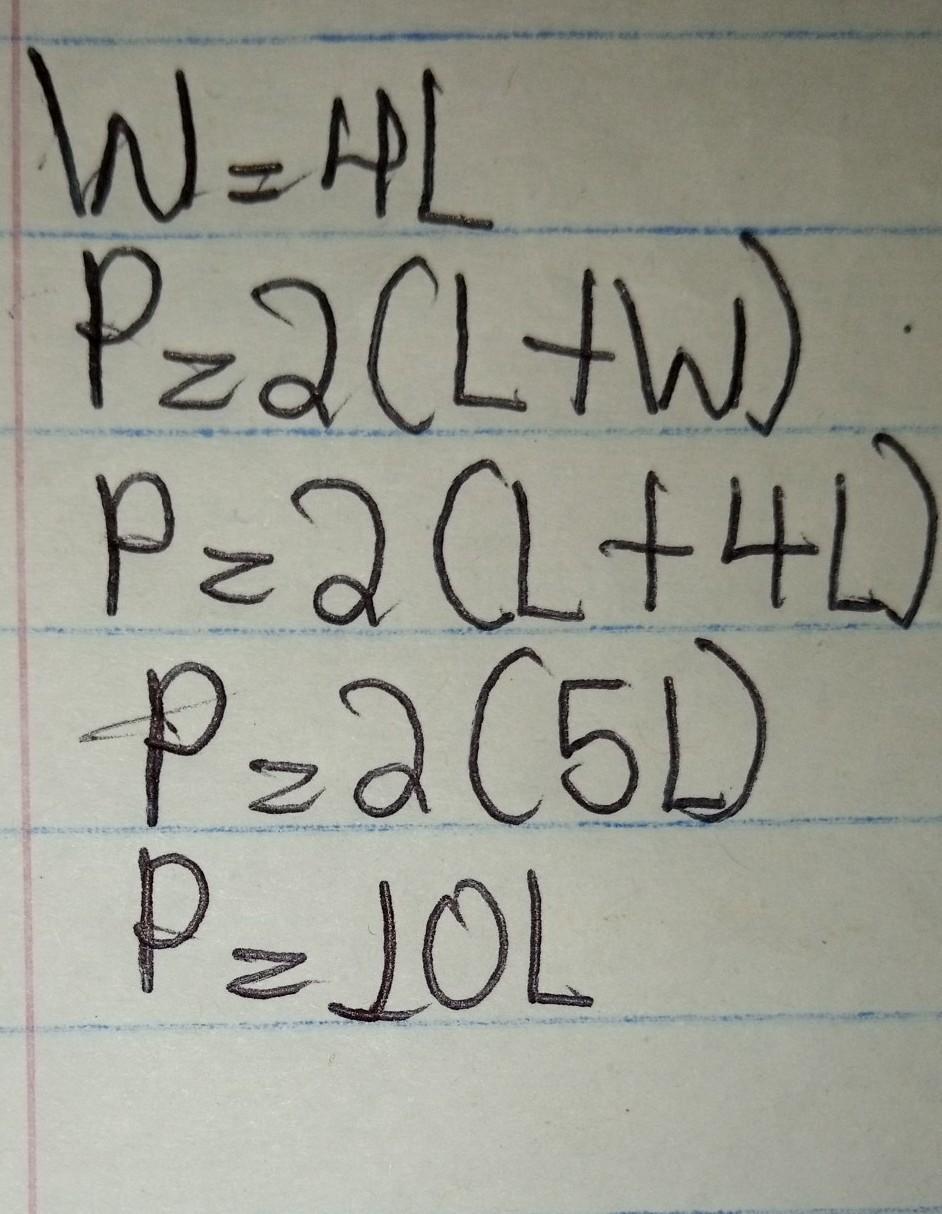 W = 4L
P = 2(L + W)
P = 2(L + 4L)
P = 2(5L)
P = 10L